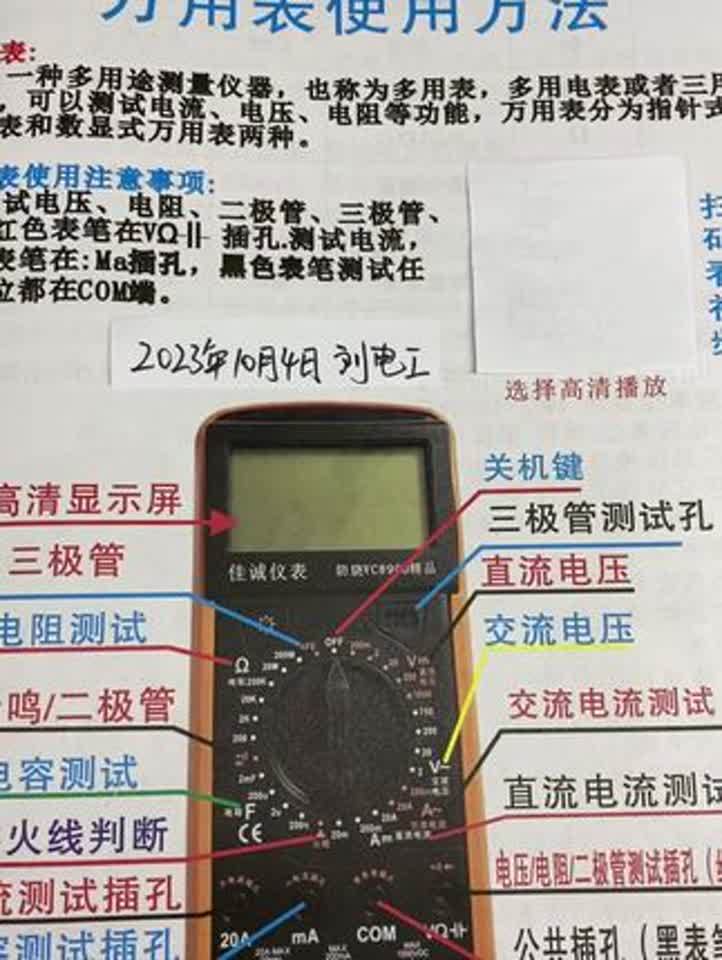 万用表使用方法
表:
一种多用途测量仪器，也称为多用表，多用电表或者三用
，可以测试电流、电压、电阻等功能，万用表分为指针式
表和数显式万用表两种。
表使用注意事项:
试电压、电阻、二极管、三极管、
红色表笔在VΩ插孔.测试电流，
表笔在:Ma插孔，黑色表笔测试任
位都在COM端。
2023年10月4日 刘电工
选择高清播放
高清显示屏
关机键
三极管测试孔
三极管
佳诚仪表
直流电压
电阻测试
交流电压
OFF
200M
20M
Ω
200K
20K
2K
200
鸣/二极管
交流电流测试
电容测试
直流电流测试
F
CE
火线判断
电压/电阻/二极管测试插孔
流测试插孔
20A
mA
COM
VΩ
容测试插孔
公共插孔（黑表笔